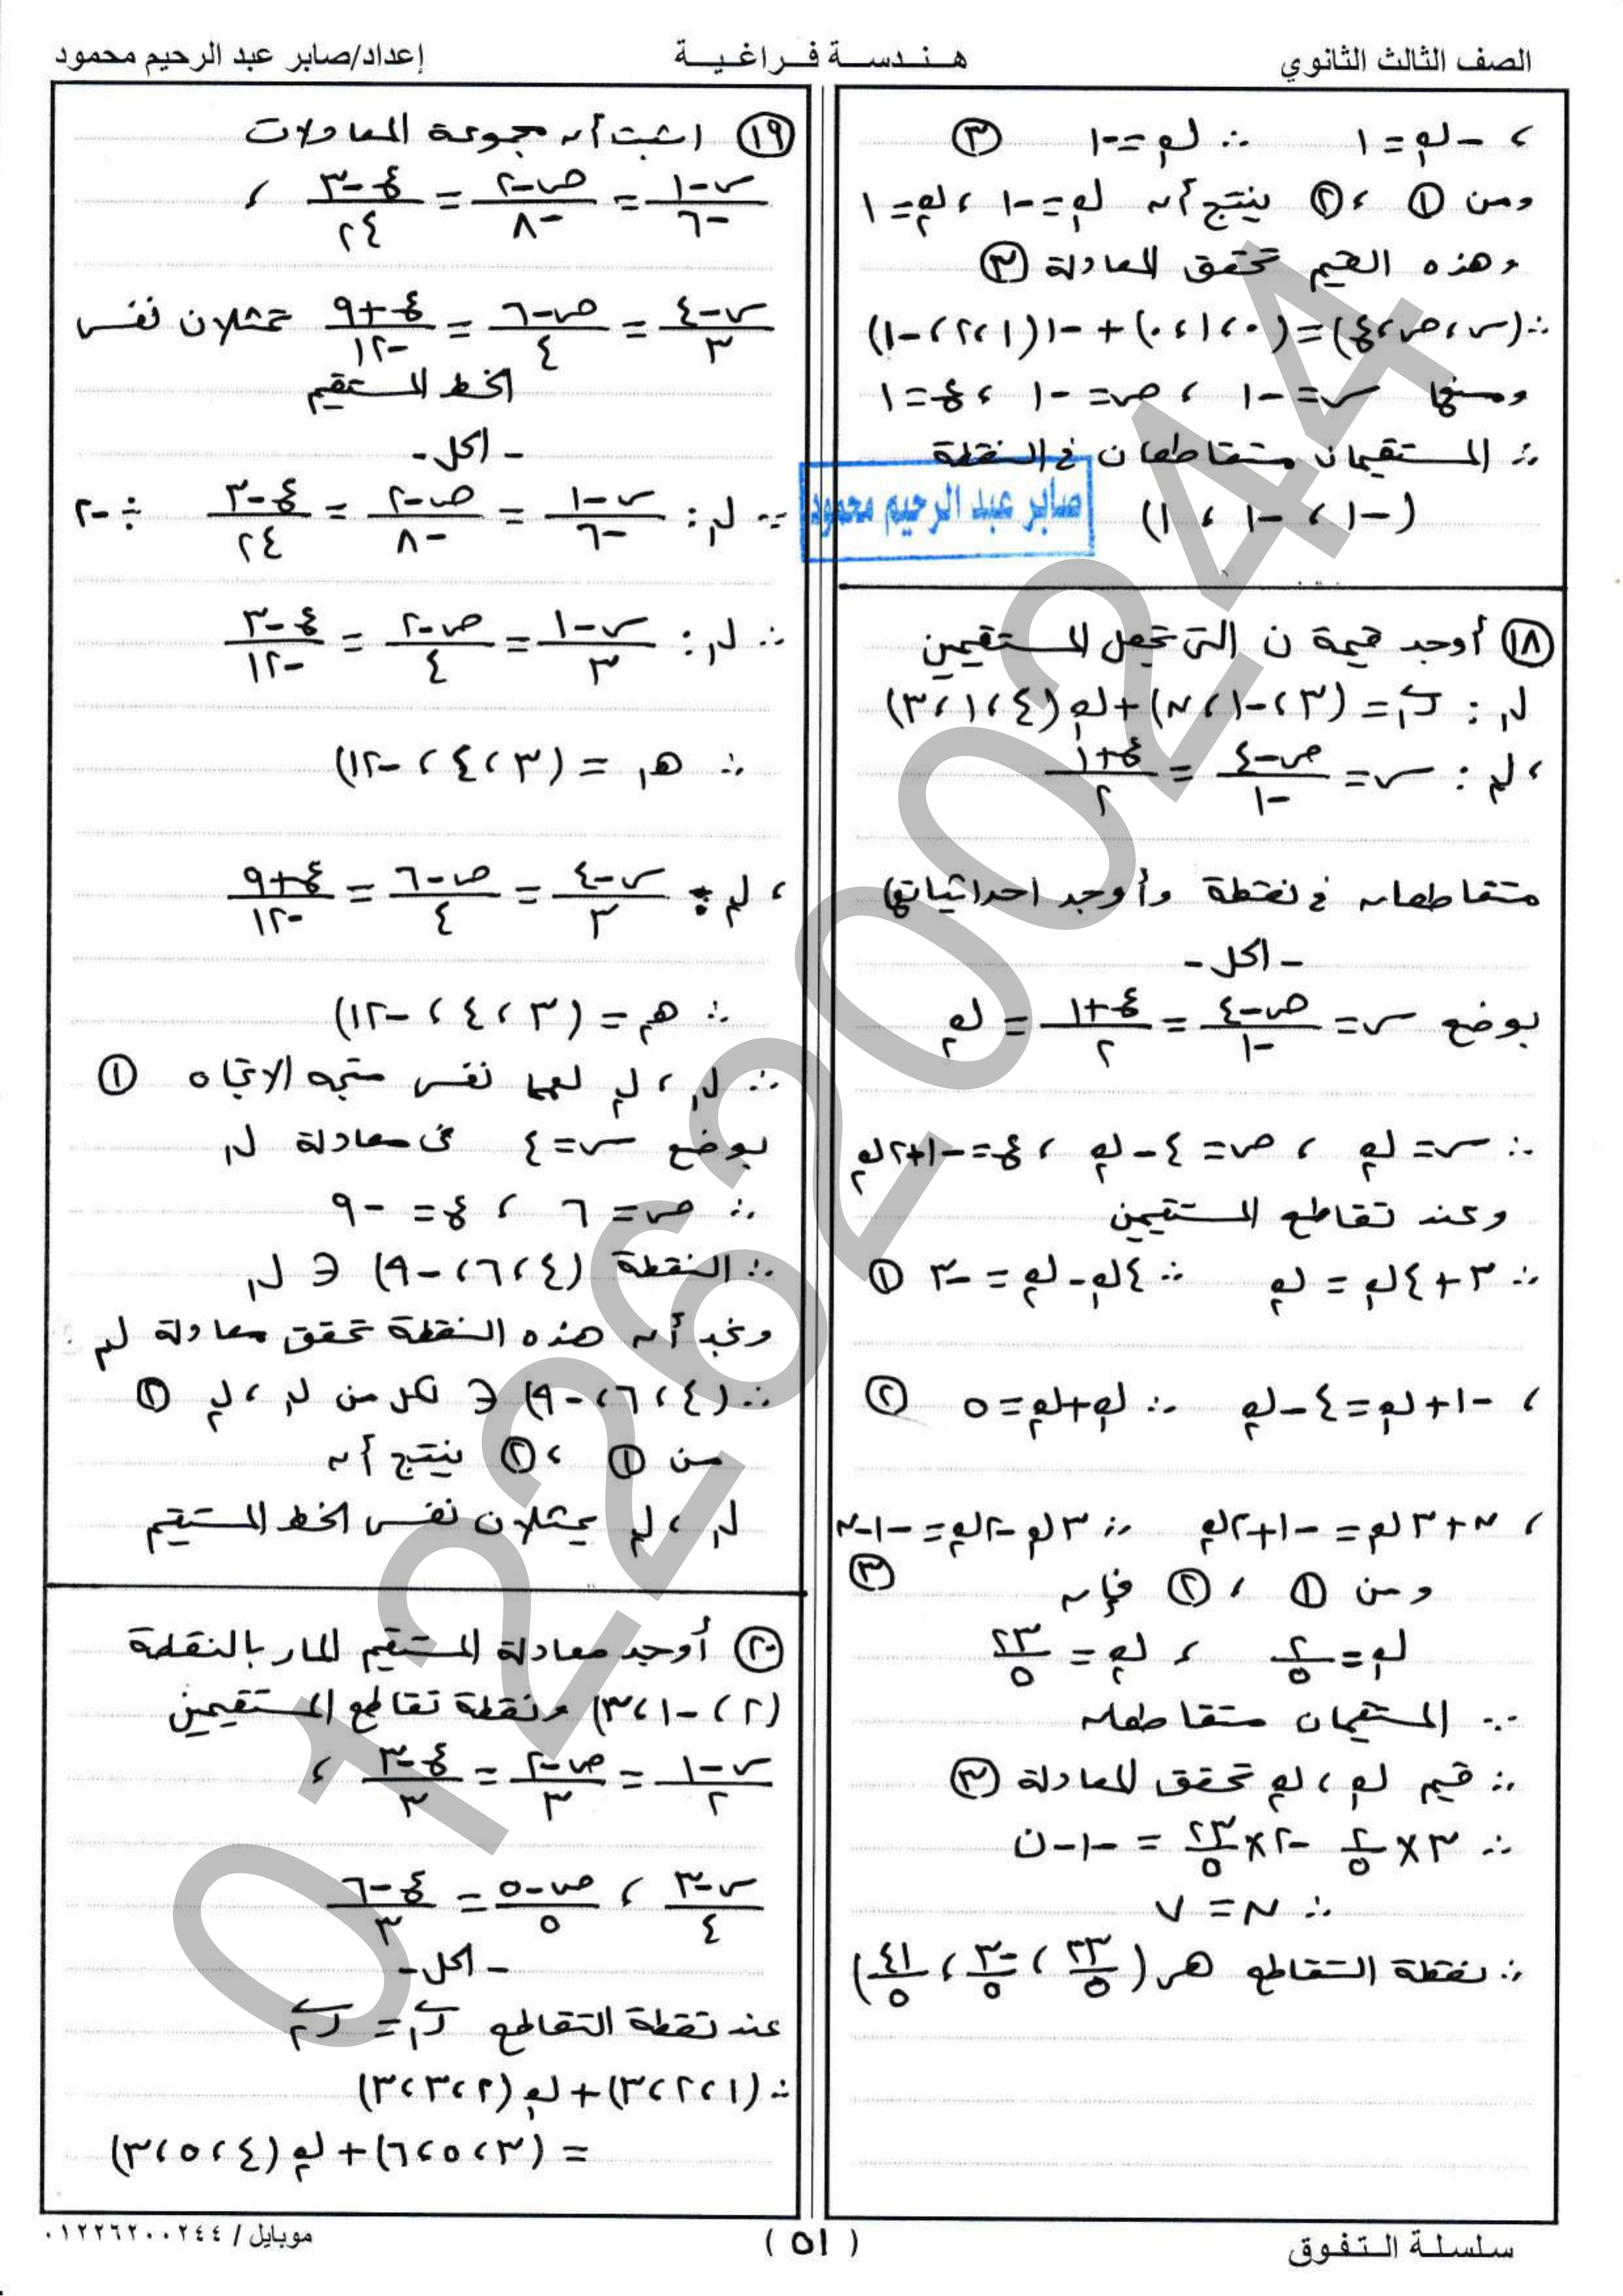 الصف الثالث الثانوي
هندسة فراغية
إعداد/صابر عبد الرحيم محمود
، -ك₂ = ١ ∴ ك₂ = -١ ③
ومن ① ، ② ينتج أن ك₁ = -١ ، ك₂ = ١
وهذه القيم تحقق المعادلة ③
∴ (س ، ص ، ع) = (٠ ، ١ ، ٠) + -١(١ ، ٢ ، -١)
ومنها س = -١ ، ص = -١ ، ع = ١
∴ المستقيمان متقاطعان في النقطة
(-١ ، -١ ، ١)
صابر عبد الرحيم محمود
⑱ أوجد قيمة ن التي تجعل المستقيمين
ل₁ : ر₁ = (٣ ، -١ ، ن) + ك₁(٤ ، ١ ، ٣)
، ل₂ : س = (ص - ٤)/-١ = (ع + ١)/٢
متقاطعان في نقطة وأوجد احداثياتها
- الحل -
بوضع س = (ص - ٤)/-١ = (ع + ١)/٢ = ك₂
∴ س = ك₂ ، ص = ٤ - ك₂ ، ع = -١ + ٢ك₂
وعند تقاطع المستقيمين
∴ ٣ + ٤ك₁ = ك₂ ∴ ٤ك₁ - ك₂ = -٣ ①
، -١ + ك₁ = ٤ - ك₂ ∴ ك₁ + ك₂ = ٥ ②
، ن + ٣ك₁ = -١ + ٢ك₂ ∴ ٣ك₁ - ٢ك₂ = -١ - ن
③
ومن ① ، ② فإن
ك₁ = ٢/٥ ، ك₂ = ٢٣/٥
∵ المستقيمان متقاطعان
∴ قيم ك₁ ، ك₂ تحقق المعادلة ③
∴ ٣ × ٢/٥ - ٢ × ٢٣/٥ = -١ - ن
∴ ن = ٧
∴ نقطة التقاطع هي (٢٣/٥ ، -٣/٥ ، ٤١/٥)
⑲ اثبت أن مجموعة المعادلات
(س - ١)/-٦ = (ص - ٢)/-٨ = (ع - ٣)/٢٤ ،
(س - ٤)/٣ = (ص - ٦)/٤ = (ع + ٩)/-١٢ تمثلان نفس
الخط المستقيم
- الحل -
∵ ل₁ : (س - ١)/-٦ = (ص - ٢)/-٨ = (ع - ٣)/٢٤ ÷ -٢
∴ ل₁ : (س - ١)/٣ = (ص - ٢)/٤ = (ع - ٣)/-١٢
∴ هـ₁ = (٣ ، ٤ ، -١٢)
، ل₂ : (س - ٤)/٣ = (ص - ٦)/٤ = (ع + ٩)/-١٢
∴ هـ₂ = (٣ ، ٤ ، -١٢)
∴ ل₁ ، ل₂ لهما نفس متجه الاتجاه ①
بوضع س = ٤ في معادلة ل₁
∴ ص = ٦ ، ع = -٩
∴ النقطة (٤ ، ٦ ، -٩) ∈ ل₁
ونجد أن هذه النقطة تحقق معادلة ل₂
∴ (٤ ، ٦ ، -٩) ∈ لكل من ل₁ ، ل₂ ②
من ① ، ② ينتج أن
ل₁ ، ل₂ يمثلان نفس الخط المستقيم
⑳ أوجد معادلة المستقيم المار بالنقطة
(٢ ، -١ ، ٣) ونقطة تقاطع المستقيمين
(س - ١)/٢ = (ص - ٢)/٣ = (ع - ٣)/٣ ،
(س - ٣)/٤ ، (ص - ٥)/٥ = (ع - ٦)/٣
- الحل -
عند نقطة التقاطع ر₁ = ر₂
∴ (١ ، ٢ ، ٣) + ك₁(٢ ، ٣ ، ٣)
= (٣ ، ٥ ، ٦) + ك₂(٤ ، ٥ ، ٣)
01226200244
سلسلة التفوق
( ٥١ )
موبايل / ٠١٢٢٦٢٠٠٢٤٤